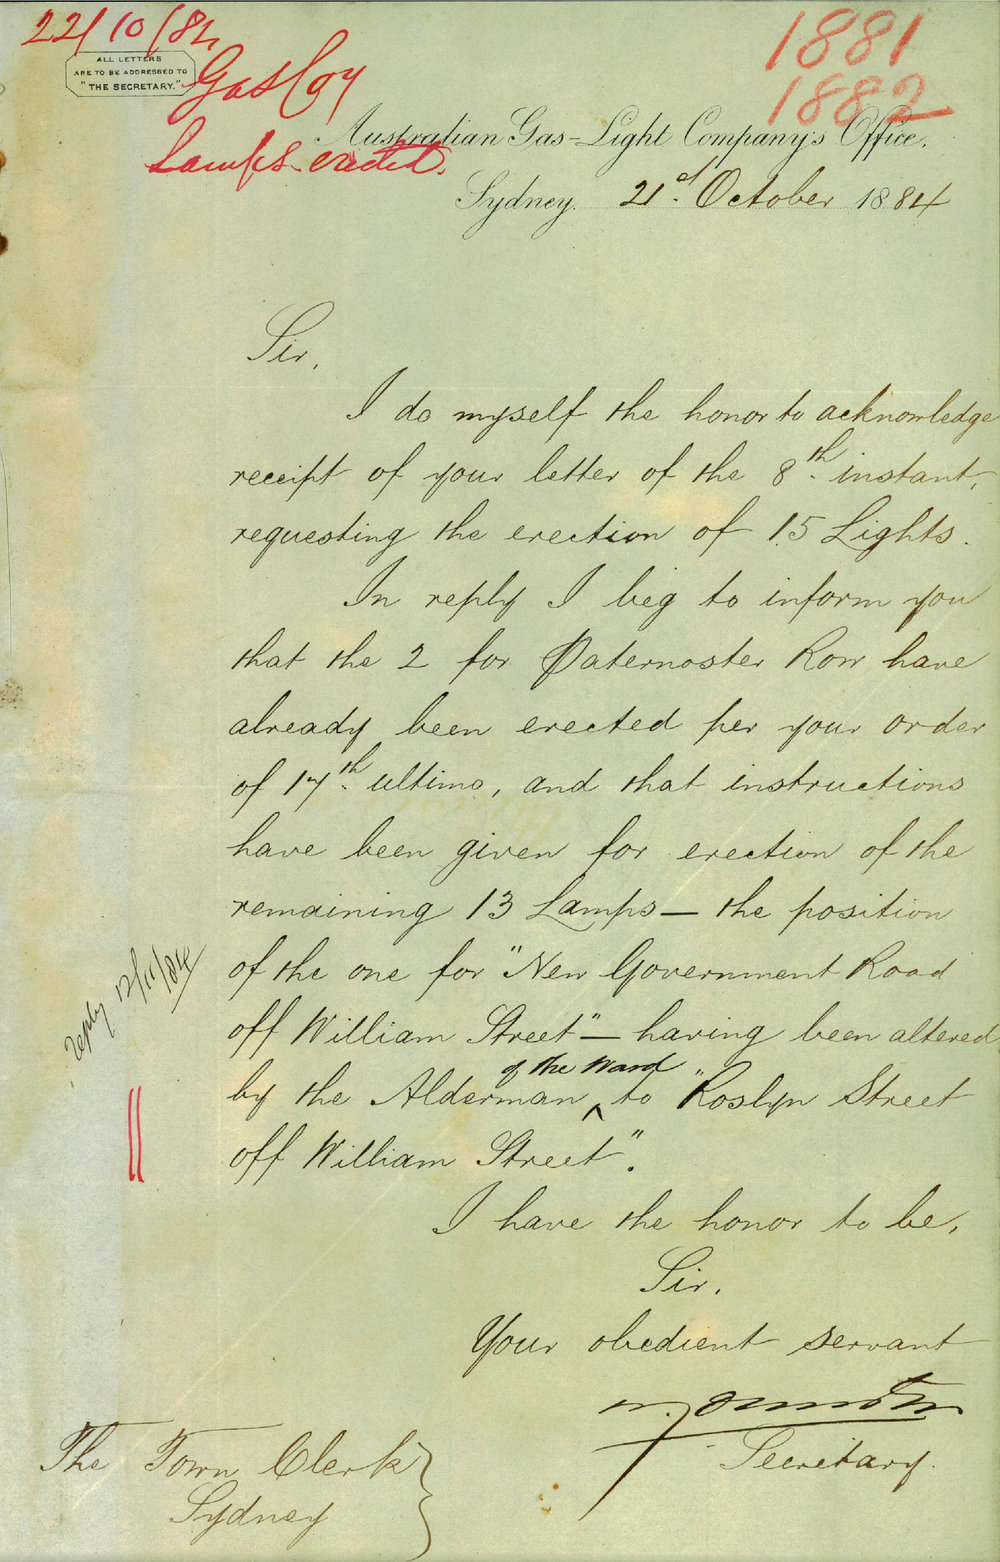 22/10/84
ALL LETTERS
ARE TO BE ADDRESSED TO
"THE SECRETARY."
Gas Coy
Lamps erectd.
1881
1882
Australian Gas-Light Company's Office.
Sydney. 21st October 1884
Sir,
I do myself the honor to acknowledge
receipt of your letter of the 8th instant,
requesting the erection of 15 Lights.
In reply I beg to inform you
that the 2 for Paternoster Row have
already been erected per your order
of 17th ultimo, and that instructions
have been given for erection of the
remaining 13 Lamps — the position
of the one for "New Government Road
off William Street" — having been altered
by the Alderman ^ of the Ward to "Roslyn Street
off William Street".
reply 12/11/84
I have the honor to be,
Sir,
Your obedient servant
Secretary.
The Town Clerk
Sydney